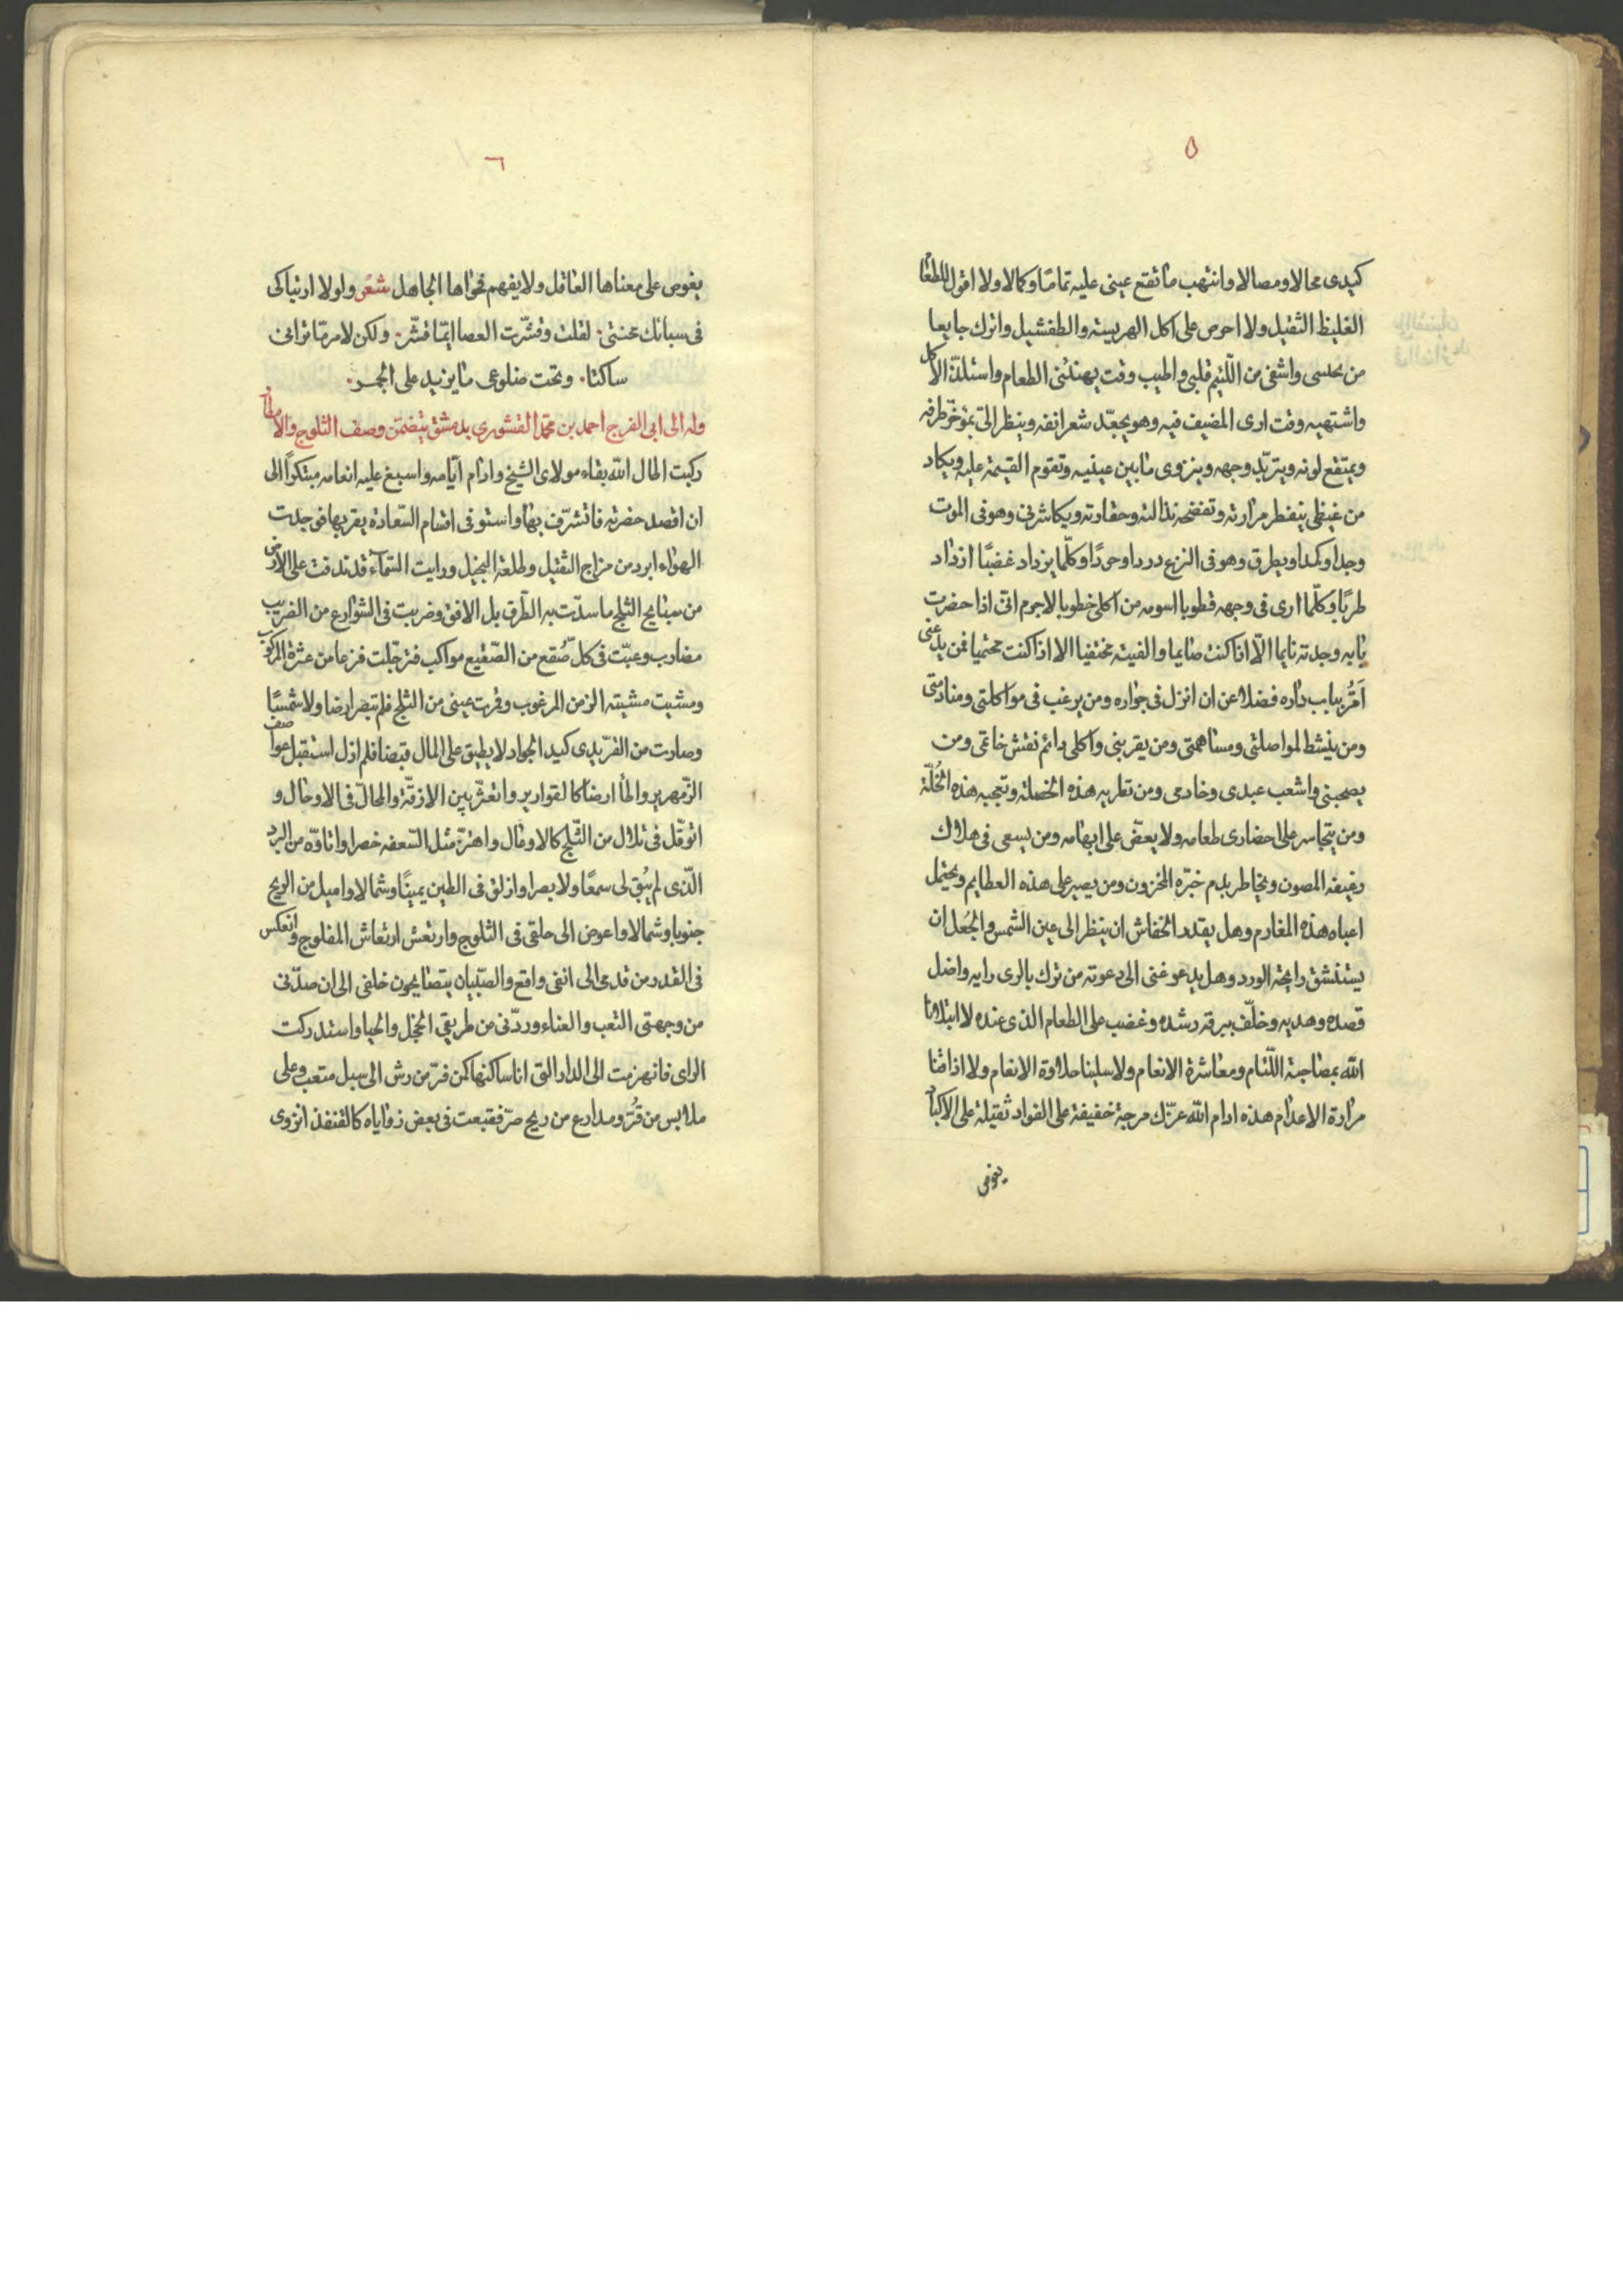 ٥
كيدى محالا ومصالا وانتهب ما تقع عينى عليه تماما وكمالا ولا اقول للطعا
الغليظ الثقيل ولا احرص على اكل الهريسته والطفشيل واترك جايعا
من يحلسى واشفى من اللّئيم قلبى واطيب وقت يهنئنى الطعام واستلذّ الاكل
واشتهيه وقت ارى المضيف فيه وهو يجعّد شعر انفه وينظر الىّ بمؤخّر طرفه
ويمتقع لونه ويتربّد وجهه وينزوى ما بين عينيه وتقوم القيمة عليه ويكاد
من غيظى ينفطر مرارته وتفضحه نذالته وحقارته ويكاشرنى وهو فى الموت
وجدا وكمدا ويطرق وهو فى النزع دردا وحردًا وكلّما يزداد غضبًا ازداد
طربًا وكلّما ارى فى وجهه قطوبا اسومه من اكلى خطوبا لاجرم انّى اذا حضرت
بابه وجدته نايما الّا اذا كنت صايما والفيته مختفيا الا اذا كنت محتميا فمن يدعنى
اَمُرُّ بباب داره فضلا عن ان انزل فى جواره ومن يرغب فى مواكلتى ومنادمتى
ومن ينشط لمواصلتى ومساهمتى ومن يقربنى واكلى دائم نقش خاتمى ومن
يصحبنى واشعب عبدى وخادمى ومن تطربه هذه الخصلة وتعجبه هذه الخُلّة
ومن يتجاسر على احضارى طعامه ولا يعضّ على ابهامه ومن يسعى فى هلاك
رغيفه المصون ويخاطر بدم خبزه المخزون ومن يصبر على هذه العظايم ويحتمل
اعباء هذه المغارم وهل يقدر الخفاش ان ينظر الى عين الشمس والجُعل ان
يستنشق رايحة الورد وهل يدعو غنى الى دعوته من ترك بالرى رايه واضل
قصده وهديه وخلّف ببرقه رشده وغضب على الطعام الذى عنده لا ابتلانا
الله بمصاحبة اللّئام ومعاشرة الانعام ولا سلبنا حلاوة الانعام ولا اذاقنا
مرارة الاعدام هذه ادام الله عزّك مرحية خفيفة على الفواد ثقيلة على الاكباد
يغوص
٦
يغوص على معناها العاقل ولا يفهم فحواها الجاهل شعر ولولا ارتباكى
فى سبانك محنتى. لقلت وقشّرت العصا ايّما قشّر. ولكن لامر مّا ترانى
ساكتا. وتحت ضلوعى ما يزيد على الجمـر.
وله الى ابى الفرج احمد بن محمّد القشورى بدمشق يتضمّن وصف الثلوج والامطار
ركبت اطال الله بقاء مولاى الشيخ وادام ايّامه واسبغ عليه انعامه مبتكرًا الى
ان اقصد حضرته فاتشرّف بها واستوفى اقسام السّعادة بقربها فوجدت
الهواء ابرد من مزاج الثقيل وطلعة البخيل ورايت السّمآء قد ندفت على الارض
من سبايح الثلج ما سدّت به الطّرق بل الافق وضربت فى الشوارع من الضريب
مضارب وعبّت فى كلّ صُقع من الصّقيع مواكب فترجّلت فزعا من عثرة المركوب
ومشيت مشيته الزمن المرغوب وقرت عينى من الثلج فلم تبصر ارضا ولا شمسًا
وصارت من القرّ يدى كيد الجواد لا يطبق على المال قبضا فلم ازل استقبل عواصف
الزّمهرير واطأ ارضا كالقوارير واتعثّر بين الازقّة والمحالّ فى الاوحال و
اتوقّل فى تلال من الثّلج كالاوعال واهتزّ مثل السّعفه خصرا واتاوّه من البرد
الّذى لم يُبق لى سمعًا ولا بصرا وازلق فى الطين يمينًا وشمالا واميل من الريح
جنوبا وشمالا واغوص الى حلقى فى الثلوج وارتعش ارتعاش المفلوج وانعكس
فى القدر من قدمى الى انفى واقع والصّبيان يتصايحون خلفى الى ان صدّنى
من وجهتى التعب والعناء وردّنى من طريقى الخجل والحيا واستدركت
الراى فانهزمت الى الدار التى انا ساكنها كمن فرّ من رش الى سبل متعب وعلى
ملابس من قُرّ ومدارع من ريح صرّ فقبعت فى بعض زواياه كالقنفذ انزوى